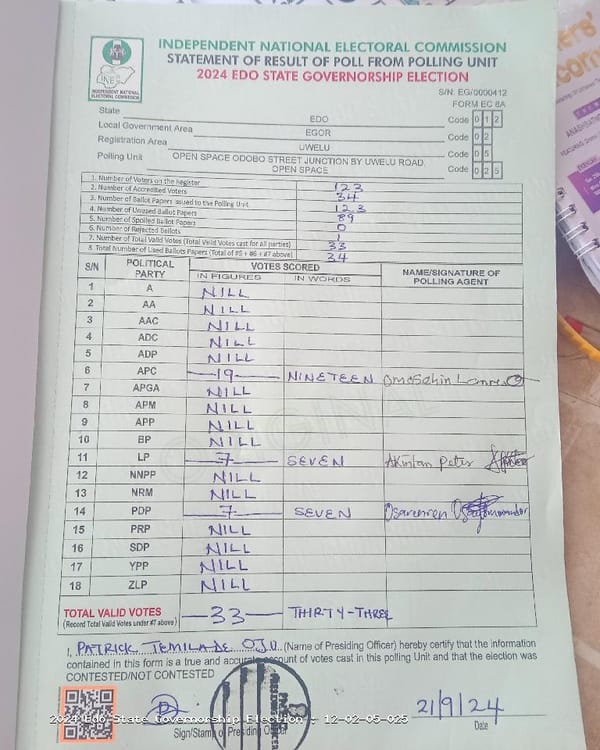 INDEPENDENT NATIONAL ELECTORAL COMMISSION
STATEMENT OF RESULT OF POLL FROM POLLING UNIT
2024 EDO STATE GOVERNORSHIP ELECTION
INEC
INDEPENDENT NATIONAL ELECTORAL COMMISSION
S/N: EG/0000412
FORM EC 8A
State EDO Code 0 1 2
Local Government Area EGOR Code 0 2
Registration Area UWELU Code 0 5
Polling Unit OPEN SPACE ODOBO STREET JUNCTION BY UWELU ROAD. OPEN SPACE Code 0 2 5
1. Number of Voters on the Register 123
2. Number of Accredited Voters 34
3. Number of Ballot Papers Issued to the Polling Unit 123
4. Number of Unused Ballot Papers 89
5. Number of Spoiled Ballot Papers 0
6. Number of Rejected Ballots 1
7. Number of Total Valid Votes (Total Valid Votes cast for all parties) 33
8. Total Number of Used Ballots Papers (Total of #5 + #6 + #7 above) 34
S/N POLITICAL PARTY VOTES SCORED NAME/SIGNATURE OF POLLING AGENT
IN FIGURES IN WORDS
1 A NILL
2 AA NILL
3 AAC NILL
4 ADC NILL
5 ADP NILL
6 APC 19 NINETEEN
7 APGA NILL
8 APM NILL
9 APP NILL
10 BP NILL
11 LP 7 SEVEN Akintan Peter
12 NNPP NILL
13 NRM NILL
14 PDP 7 SEVEN
15 PRP NILL
16 SDP NILL
17 YPP NILL
18 ZLP NILL
TOTAL VALID VOTES 33 THIRTY-THREE
(Record Total Valid Votes under #7 above)
I, PATRICK TEMILADE OJO (Name of Presiding Officer) hereby certify that the information
contained in this form is a true and accurate account of votes cast in this polling Unit and that the election was
CONTESTED/NOT CONTESTED
21/9/24
2024 Edo State Governorship Election : 12-02-05-025
Sign/Stamp of Presiding Officer Date